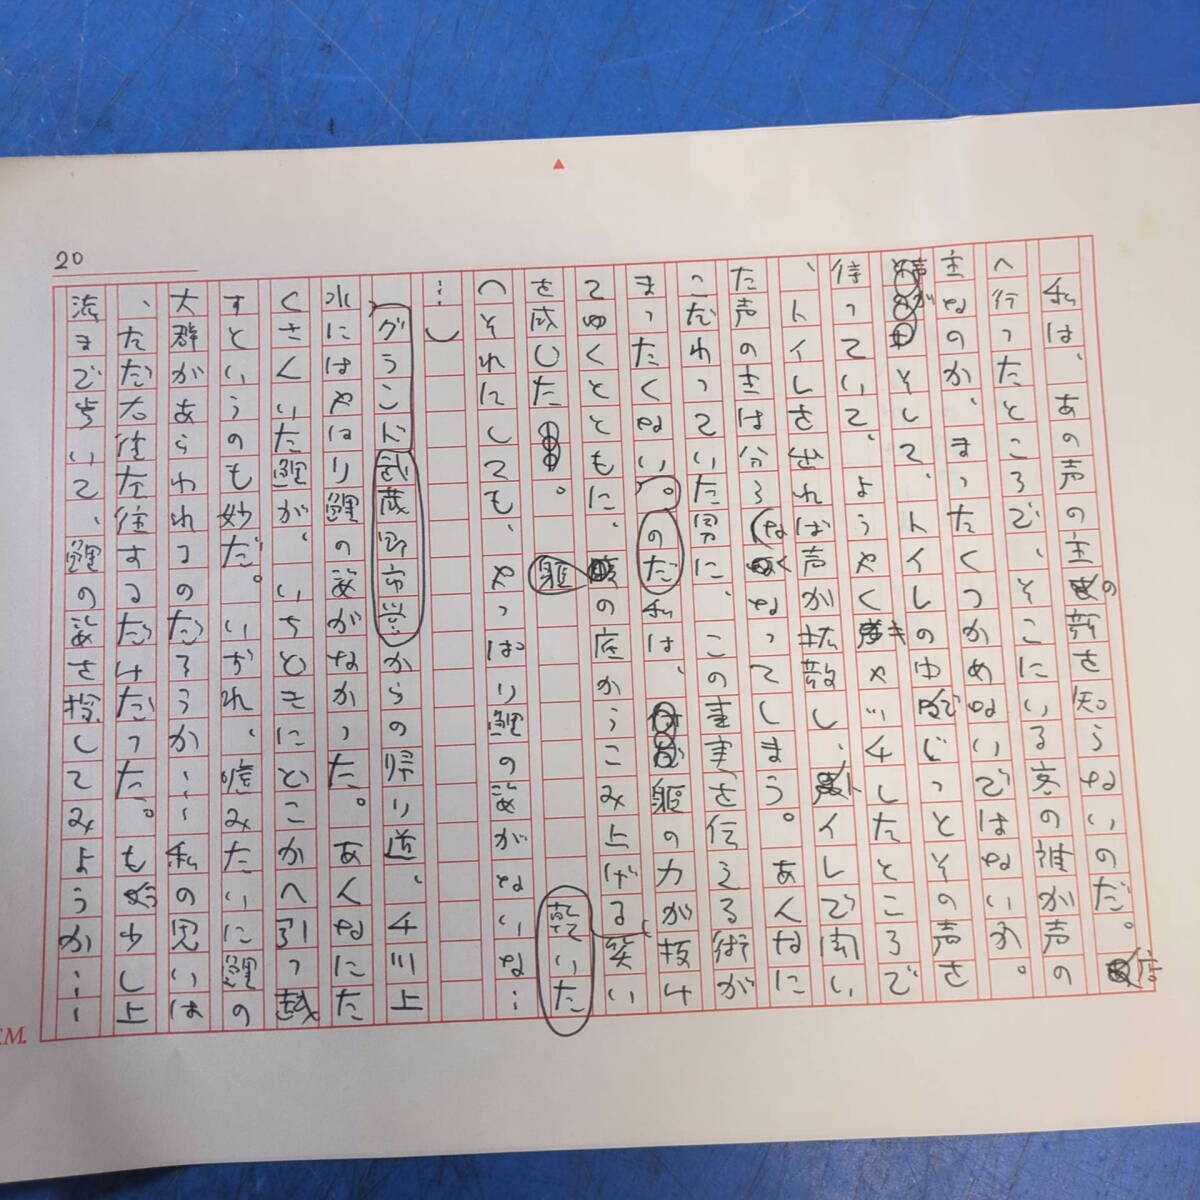 20
私は、あの声の主の顔を知らないのだ。店
へ行ったところで、そこにいる客の誰が声の
主なのか、まったくつかめないではないか。
そして、トイレのゆかでじっとその声を
待っていて、ようやくキャッチしたところで
、トイレを出れば声が拡散し、トイレで聞い
た声の主は分らなくなってしまう。あんなに
こだわっていた男に、この事実を伝える術が
まったくないのだ。私は、躯の力が抜け
てゆくとともに、躯の底からこみ上げる乾いた笑い
を感じた。
（それにしても、やっぱり鯉の姿がないな…
…）
グランド武蔵野市営からの帰り道、千川上
水にはやはり鯉の姿がなかった。あんなにた
くさんいた鯉が、いちどきにどこかへ引っ越
すというのも妙だ。いずれ、嘘みたいに鯉の
大群があらわれるのだろうか……私の思いは
、ただ右往左往するだけだった。もう少し上
流まで歩いて、鯉の姿を探してみようか……